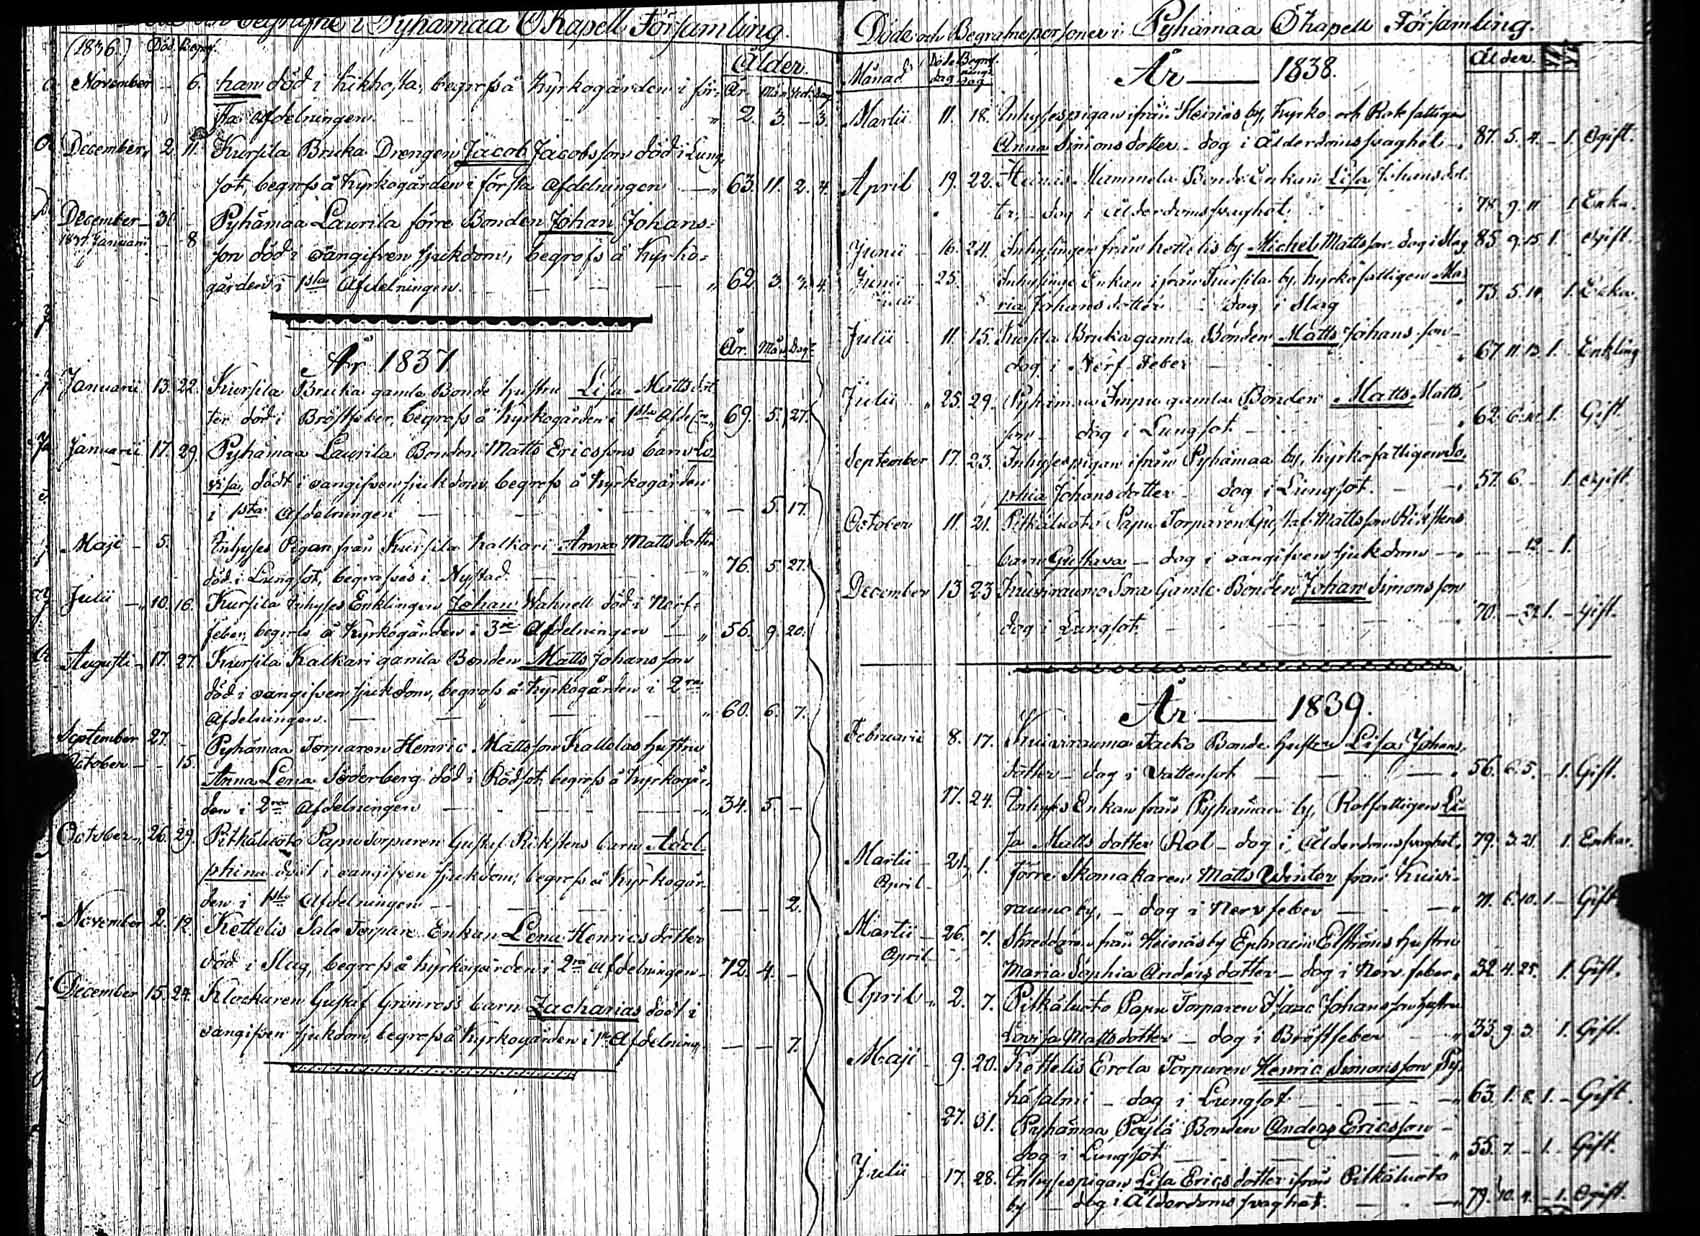 Begrafne i Pyhämaa Ö Kapell Församling.
(1836.) Död. Begrf. Ålder.
November 6. han död i Kikhosta, begrofs å Kyrkogården i för-
År. Mån. Dag.
sta Afdelningen. 2. 3. - 3.
December 2. 11. Kursila Bruka Drengen Jacob Jacobsson död i Lung-
sot, begrofs å Kyrkogården i första Afdelningen 63. 11. 2. 4.
December 31. Pyhämaa Laurila förre Bonden Johan Johans-
1837 Januari 8. son död i oangifven sjukdom, begrofs å Kyrko-
gården i 1sta Afdelningen. 62. 3.
År 1837
År. Mån. Dag.
Januarii 13. 22. Kursila Bruka gamla Bonde hustru Lisa Matts dot-
ter död i Bröstfeber, begrofs å Kyrkogården i 1sta Afdeln. 69. 5. 27.
Januarii 17. 29. Pyhämaa Laurila Bonden Matts Ericssons barn Lo-
visa, dödt i oangifven sjukdom, begrofs å Kyrkogården
i 1sta Afdelningen - 5. 17.
Maji 5. Inhyses Pigan från Kursila Kalkari Anna Matts dotter
död i Lungsot, begrafves i Nystad. 76. 5. 27.
Julii 10. 16. Kursila Inhyses Enklingen Johan Wahnell död i Nerf-
feber, begrofs å Kyrkogården i 3ne Afdelningen 56. 9. 20.
Augusti 17. 27. Kursila Kalkari gamla Bonden Matts Johansson
död i oangifven sjukdom, begrofs å Kyrkogården i 2ra
Afdelningen. 60. 6. 7.
September 27. Pyhämaa Torparen Henric Mattsson Kattelas hustru
October 15. Anna Lena Söderberg död i Rödsot, begrofs å Kyrkogår-
den i 2ra Afdelningen 34. 5. -
October 26. 29. Pitkäluoto Papu torparen Gustaf Rikstens barn Adol-
phina dödt i oangifven sjukdom, begrofs å Kyrkogår-
den i 1sta Afdelningen - - 2.
November 2. 12. Kettelis Salo Torpare Enkan Lena Henrics dotter
död i Slag, begrofs å Kyrkogården i 2ra Afdelningen 72. 4. -
December 15. 24. Klockaren Gustaf Grönroos barn Zacharias dödt i
oangifven sjukdom, begrofs å Kyrkogården i 1sta Afdelning. - - 7.
Döde och Begrafne personer i Pyhämaa Ö Kapell Församling.
Månad Döds dag Begrafnings dag År 1838. Ålder.
Martii 11. 18. Inhysespigan ifrån Heinäs by, Kyrko och Rotefattigen
Anna Simons dotter - dog i Ålderdomssvaghet 87. 5. 4. - 1. Ogift.
April 19. 22. Heinäs Mammela Bonde Enkan Lisa Johans dot-
ter - dog i Ålderdomssvaghet. 78. 9. 11. 1. Enka.
Junii 16. 24. Inhysingen från Kettelis by Michel Mattsson dog i Slag 85. 9. 15. 1. Ogift.
Junii 25. Inhysings Enkan ifrån Kursila by, Kyrkofattigen Ma-
ria Johans dotter - dog i Slag 73. 5. 14. 1. Enka.
Julii 11. 15. Kursila Bruka gamla Bonden Matts Johansson
dog i Nerf feber 67. 11. 13. 1. Enkling
Julii 25. 29. Pyhämaa Impu gamla Bonden Matts Matts-
son - dog i Lungsot. 62. 1. Gift.
September 17. 23. Inhysespigan ifrån Pyhämaa by, Kyrkofattigen So-
phia Johans dotter - dog i Lungsot. 57. 6. - 1. Ogift.
October 11. 21. Pitkäluoto Papu Torparen Gustaf Mattsson Rikstens
barn Gustava - dog i oangifven sjukdom - 12. - 1.
December 13. 23. Kuivirauma Sora Gamle Bonden Johan Simonsson
dog i Lungsot 70. - 22. 1. - Gift.
År 1839.
Februarii 8. 17. Kuivirauma Jacko Bonde hustru Lisa Johans
dotter - dog i Vattensot 56. 6. 5. - 1. Gift.
17. 24. Inhyses Enkan från Pyhämaa by, Rotfattigen Li-
sa Matts dotter Rol - dog i Ålderdomssvaghet. 79. 3. 21. 1. Enka.
Martii 21. 1. Förre Skomakaren Matts Winter från Kuivi-
April rauma by, - dog i Nervfeber 71. 6. 10. 1. - Gift
Martii 26. 7. Skreddaren från Heinäs by Ephraim Elströms hustru
April Maria Sophia Anders dotter - dog i Nerv feber 32. 4. 25. 1. Gift.
April 2. 7. Pitkäluoto Papu Torparen Isaac Johanssons hustru
Lovisa Matts dotter - dog i Bröstfeber 33. 9. 3. 1. Gift.
Maji 9. 20. Kettelis Erola Torparen Henric Simonsson Py-
häsalmi - dog i Lungsot 63. 1. 8. 1. - Gift.
27. 31. Pyhämaa Päylä Bonden Anders Ericsson -
dog i Lungsot 55. 7. - 1. - Gift.
Julii 17. 28. Inhysespigan Lisa Erics dotter ifrån Pitkäluoto
by - dog i Ålderdoms svaghet. 79. 10. 4. - 1. Ogift.